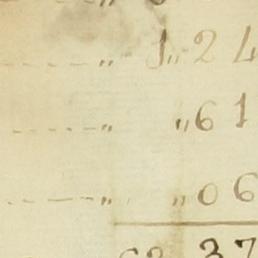 ---- " 1 " 24
---- " " 61
---- " " 06
62 37